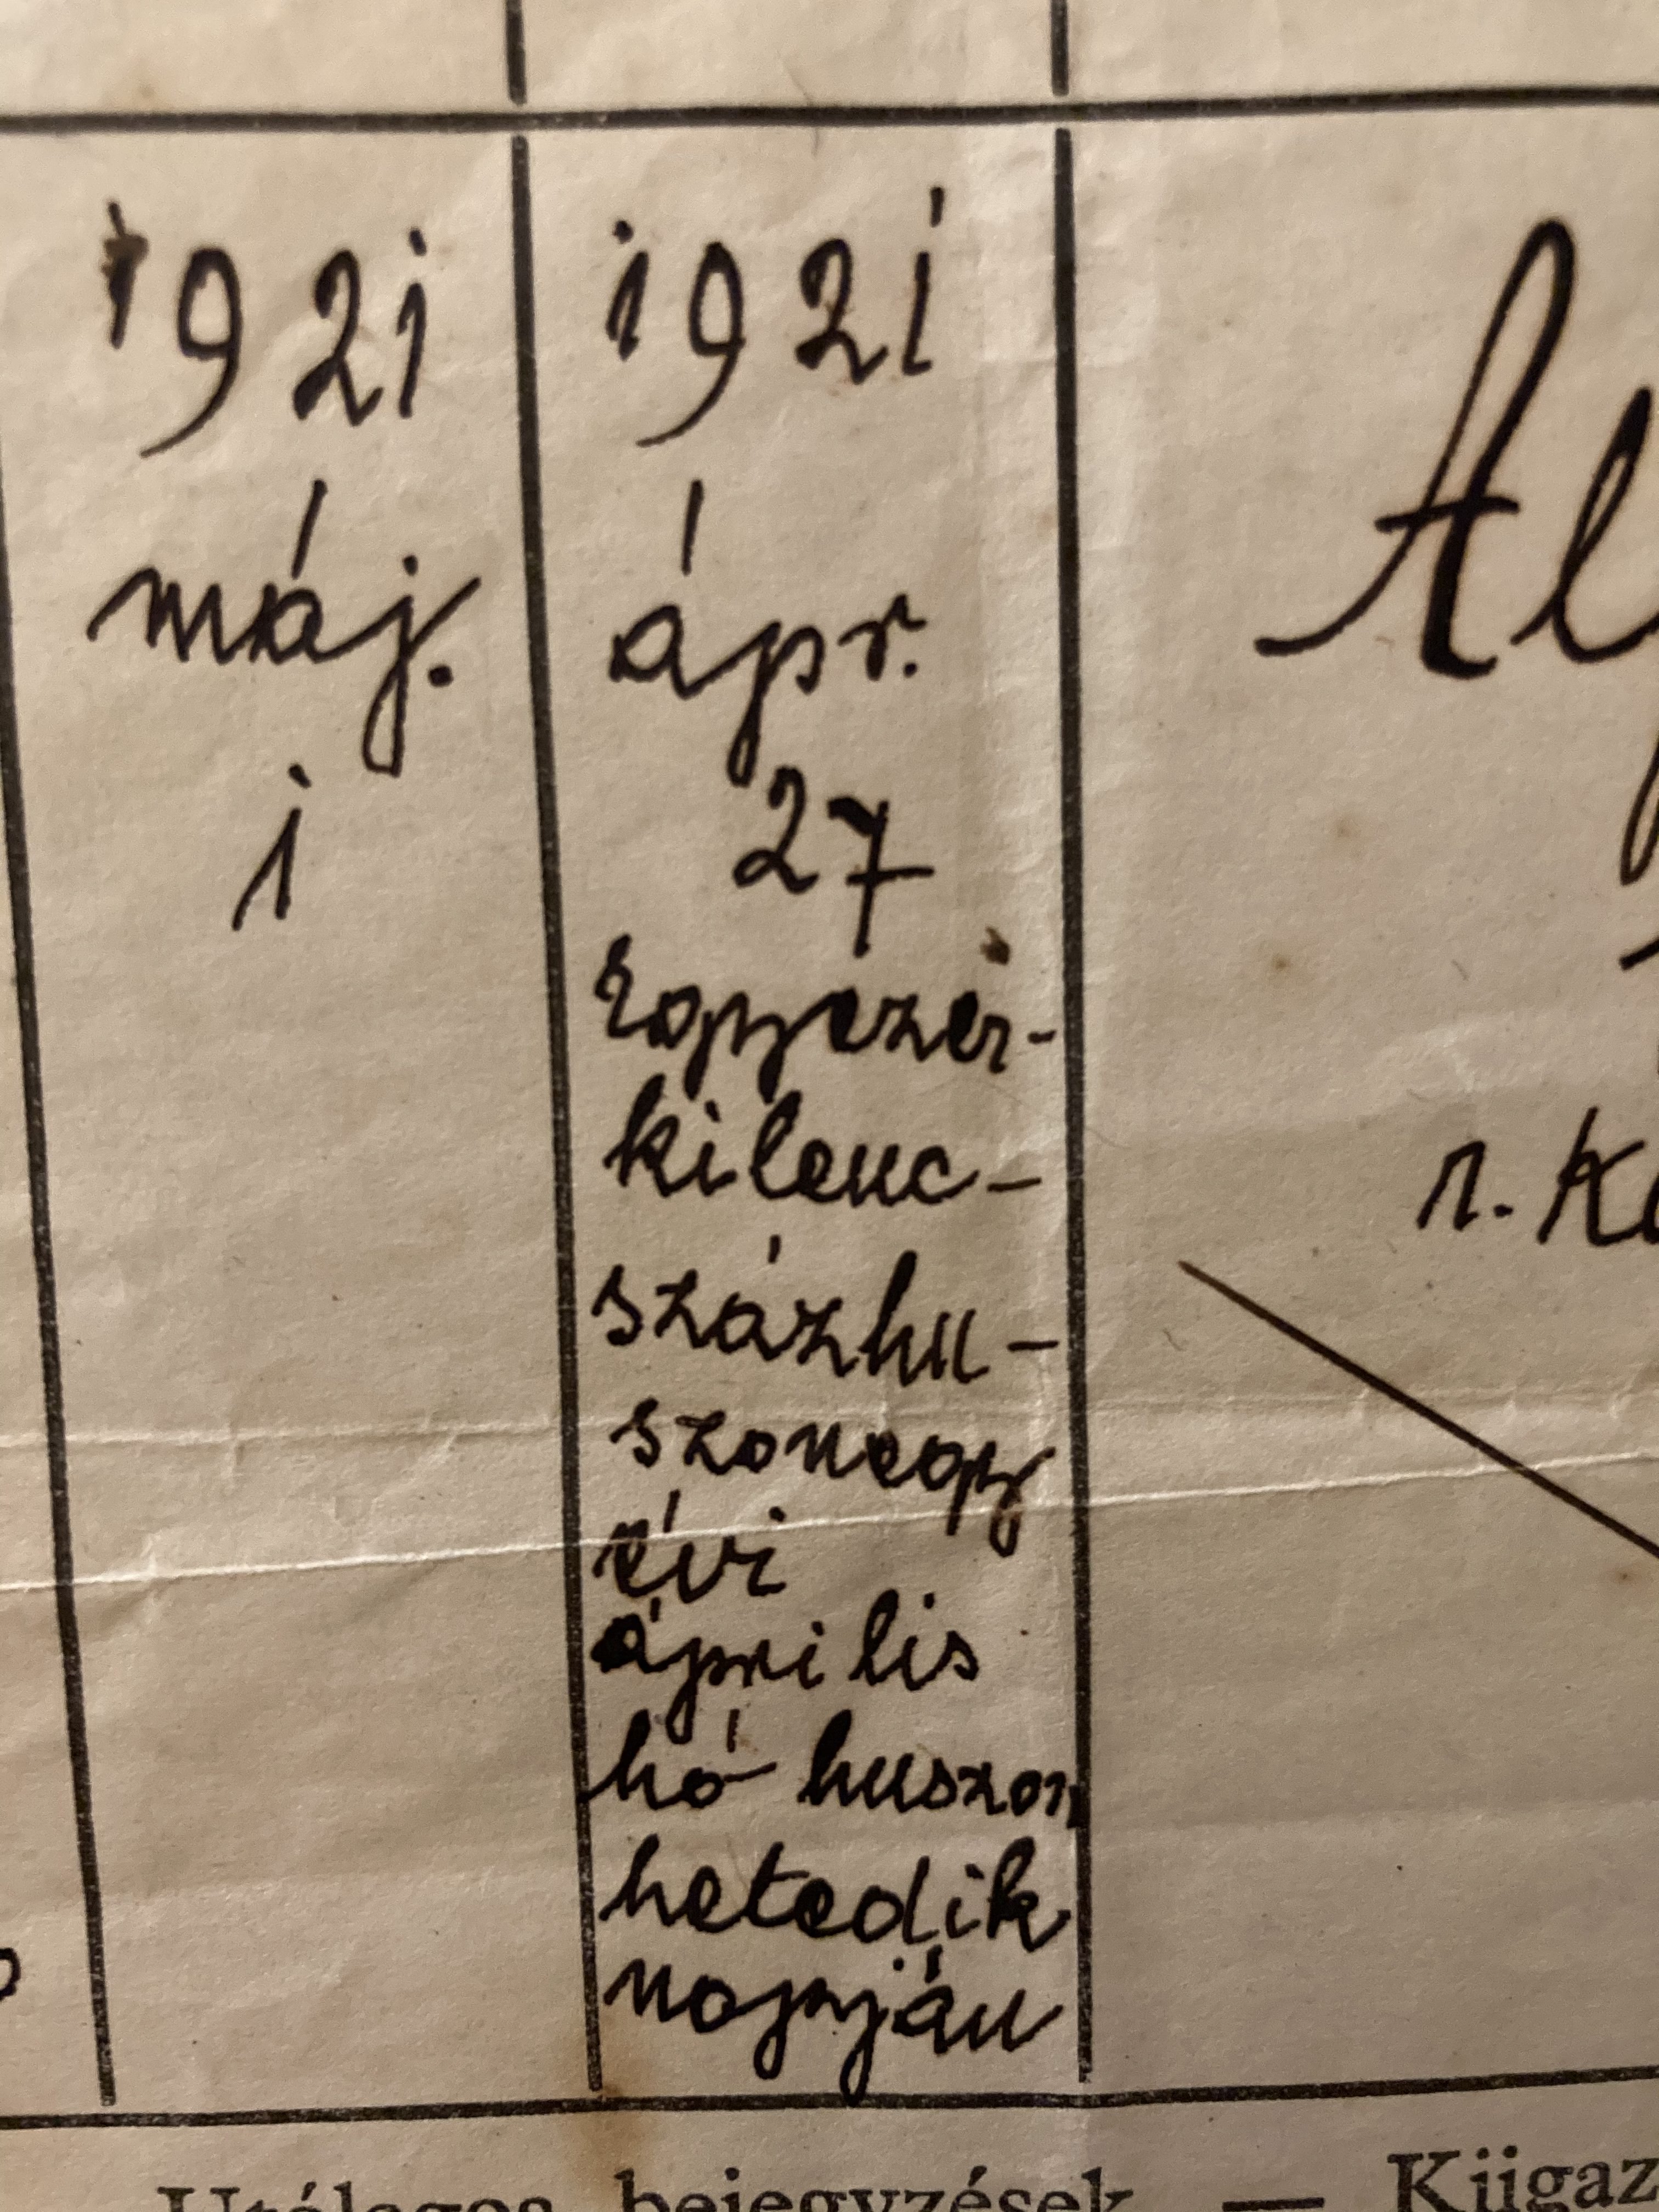 1921
máj.
1
1921
ápr.
27
Egyezer-
kilenc-
százhu-
szonegy
évi
április
hó huszon
hetedik
napján
Al
r. Ka
Utólagos bejegyzések. — Kiigaz